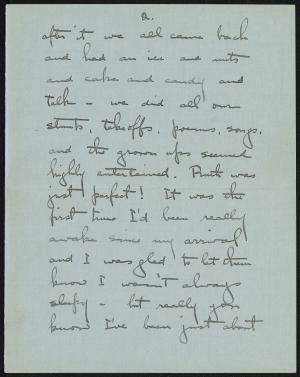 2.
after it we all came back
and had an ice and nuts
and cake and candy and
talk - we did all our
stunts, takeoffs, poems, songs,
and the grown ups seemed
highly entertained. Ruth was
just perfect! It was the
first time I'd been really
awake since my arrival
and I was glad to let them
know I wasn't always
sleepy - but really you
know I've been just about